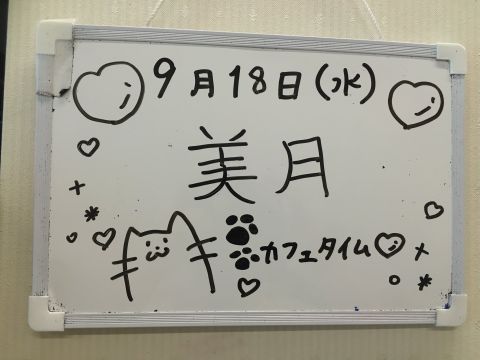 9月18日(水)
美月
カフェタイム